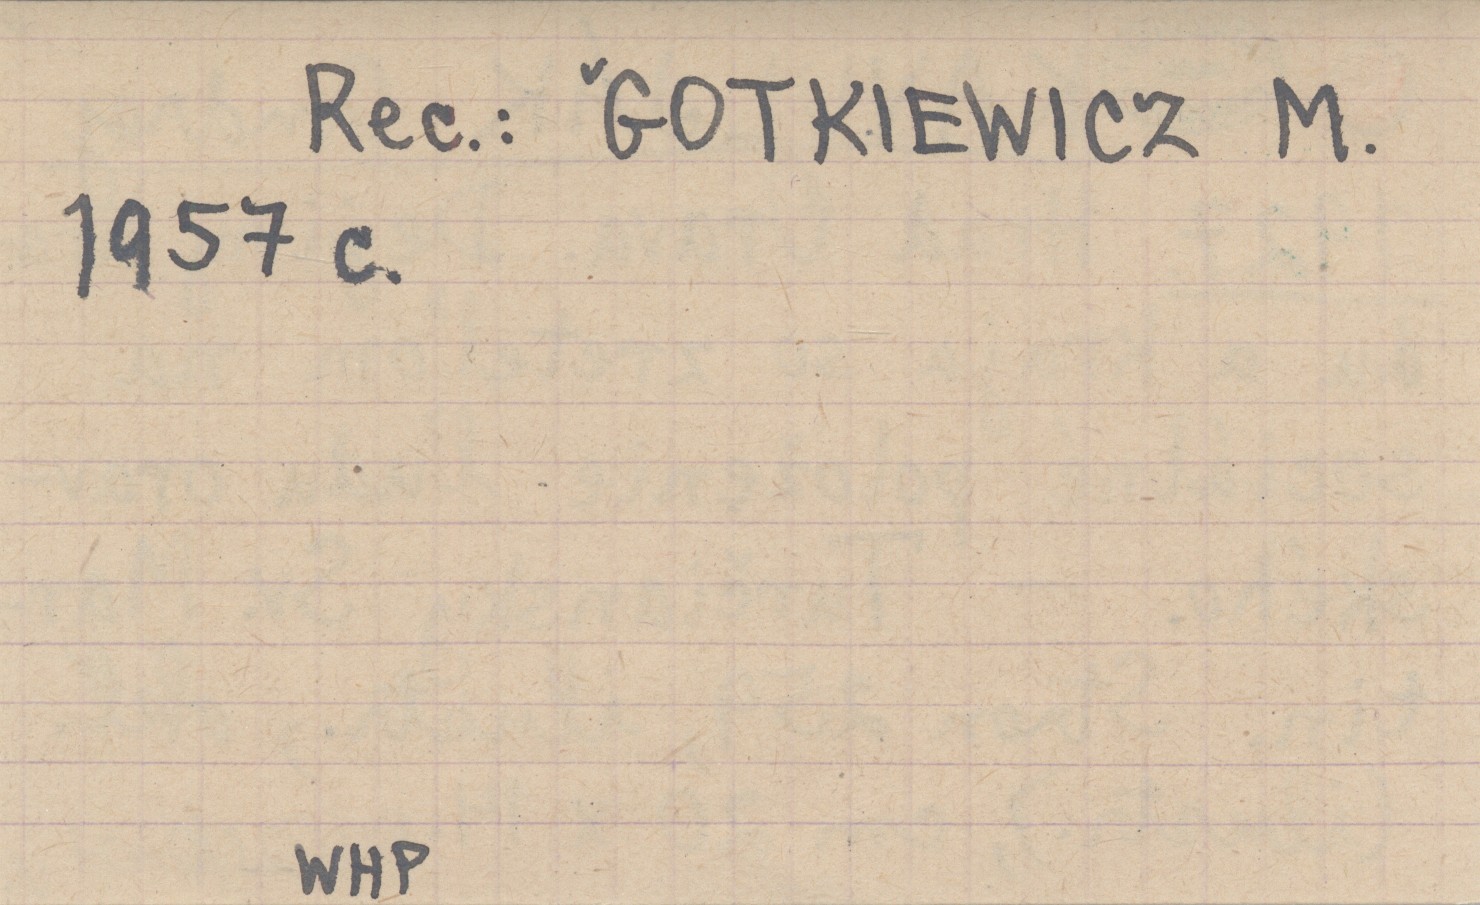 Rec.: ˇGOTKIEWICZ M.
1957 c.
WHP